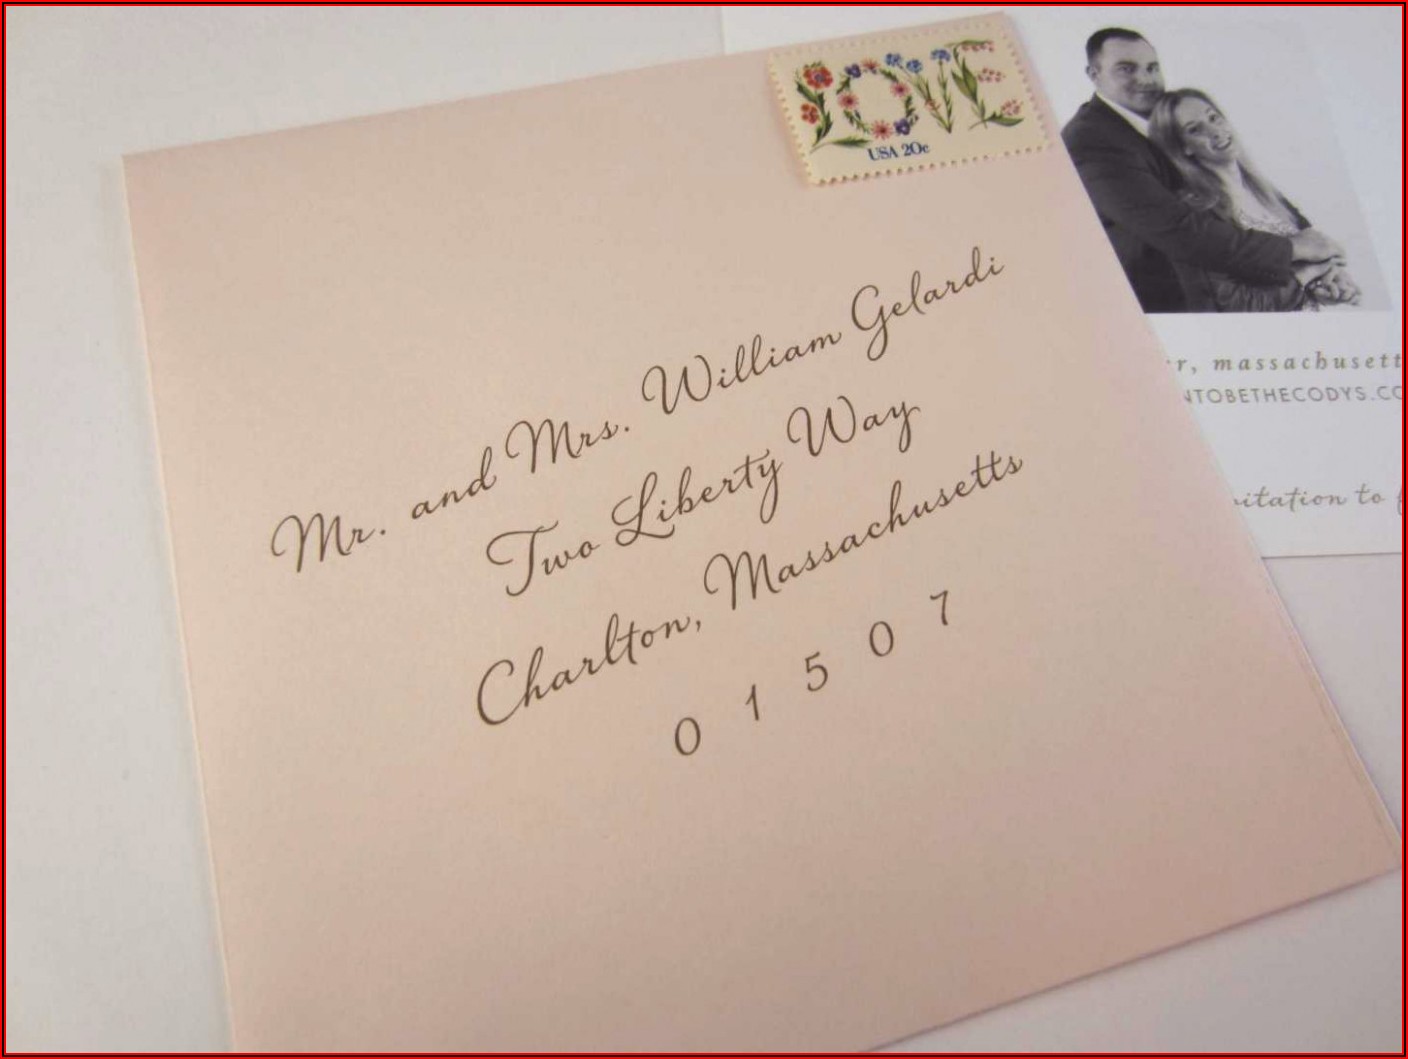 LOVE
USA 20c
Mr. and Mrs. William Gelardi
Two Liberty Way
Charlton, Massachusetts
0 1 5 0 7
r, massachusett
NTOBETHECODYS.CO
itation to